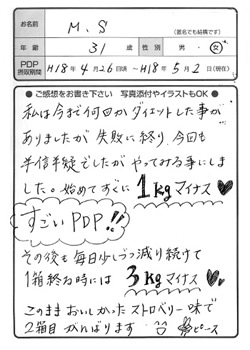 お名前 M.S (匿名でも結構です)
年齢 31才 性別 男・女
PDP摂取期間 H18年4月26日頃〜H18年5月2日(現在)
●ご感想をお書き下さい 写真添付やイラストもOK●
私は今まで何回かダイエットした事が
ありましたが失敗に終り、今回も
半信半疑でしたがやってみる事にしま
した。始めてすぐに1kgマイナス♥
すごいPDP!!
その後も毎日少しづつ減り続けて
1箱終わる時には3kgマイナス♥
このままおいしかったストロベリー味で
2箱目がんばります ピース